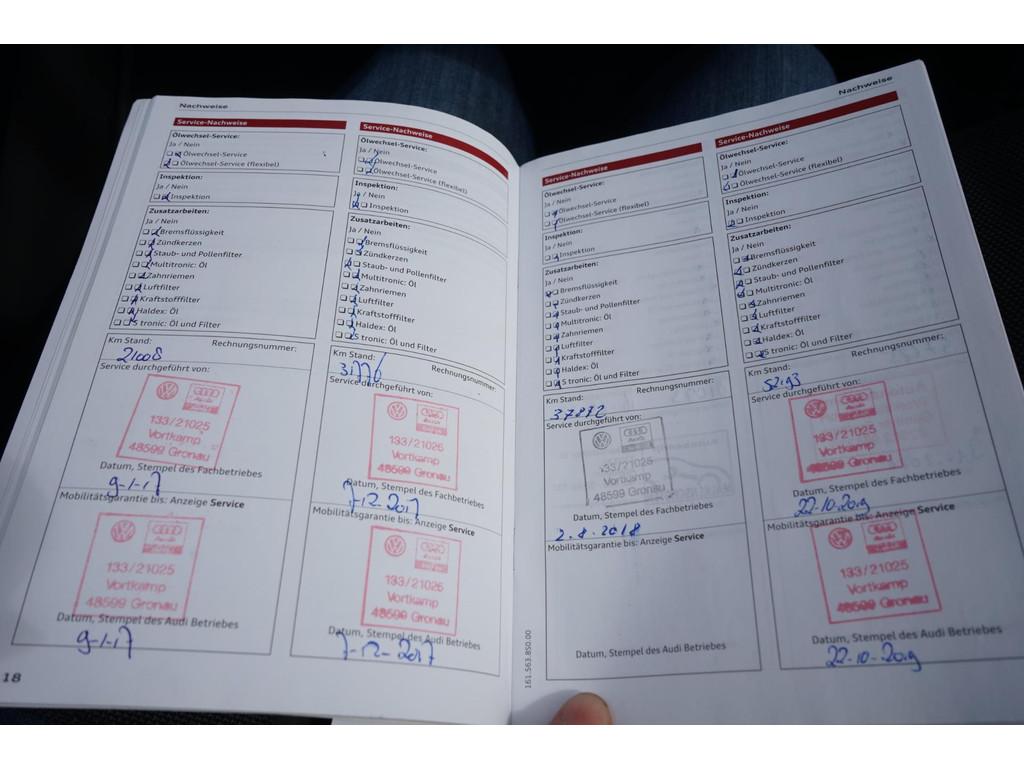 Nachweise
Service-Nachweise
Ölwechsel-Service:
Ja / Nein
Ölwechsel-Service
Ölwechsel-Service (flexibel)
Inspektion:
Ja / Nein
Inspektion
Zusatzarbeiten:
Ja / Nein
Bremsflüssigkeit
Zündkerzen
Staub- und Pollenfilter
Multitronic: Öl
Zahnriemen
Luftfilter
Kraftstofffilter
Haldex: Öl
S tronic: Öl und Filter
Km Stand:
Rechnungsnummer:
21008
Service durchgeführt von:
Audi
133/21025
Vortkamp
48599 Gronau
Datum, Stempel des Fachbetriebes
9-1-17
Mobilitätsgarantie bis: Anzeige Service
Audi
133/21025
Vortkamp
48599 Gronau
Datum, Stempel des Audi Betriebes
9-1-17
18
Service-Nachweise
Ölwechsel-Service:
Ja / Nein
Ölwechsel-Service
Ölwechsel-Service (flexibel)
Inspektion:
Ja / Nein
Inspektion
Zusatzarbeiten:
Ja / Nein
Bremsflüssigkeit
Zündkerzen
Staub- und Pollenfilter
Multitronic: Öl
Zahnriemen
Luftfilter
Kraftstofffilter
Haldex: Öl
S tronic: Öl und Filter
Km Stand:
Rechnungsnummer:
31776
Service durchgeführt von:
Audi
133/21025
Vortkamp
48599 Gronau
Datum, Stempel des Fachbetriebes
7-12-2017
Mobilitätsgarantie bis: Anzeige Service
Audi
133/21025
Vortkamp
48599 Gronau
Datum, Stempel des Audi Betriebes
7-12-2017
Nachweise
Service-Nachweise
Ölwechsel-Service:
Ja / Nein
Ölwechsel-Service
Ölwechsel-Service (flexibel)
Inspektion:
Ja / Nein
Inspektion
Zusatzarbeiten:
Ja / Nein
Bremsflüssigkeit
Zündkerzen
Staub- und Pollenfilter
Multitronic: Öl
Zahnriemen
Luftfilter
Kraftstofffilter
Haldex: Öl
S tronic: Öl und Filter
Km Stand:
Rechnungsnummer:
Service durchgeführt von:
Audi
133/21025
Vortkamp
48599 Gronau
Datum, Stempel des Fachbetriebes
2.8.2018
Mobilitätsgarantie bis: Anzeige Service
Datum, Stempel des Audi Betriebes
161.563.850.00
Service-Nachweise
Ölwechsel-Service:
Ja / Nein
Ölwechsel-Service
Ölwechsel-Service (flexibel)
Inspektion:
Ja / Nein
Inspektion
Zusatzarbeiten:
Ja / Nein
Bremsflüssigkeit
Zündkerzen
Staub- und Pollenfilter
Multitronic: Öl
Zahnriemen
Luftfilter
Kraftstofffilter
Haldex: Öl
S tronic: Öl und Filter
Km Stand:
Rechnungsnummer:
Service durchgeführt von:
Audi
133/21025
Vortkamp
48599 Gronau
Datum, Stempel des Fachbetriebes
22-10-2019
Mobilitätsgarantie bis: Anzeige Service
Audi
133/21025
Vortkamp
48599 Gronau
Datum, Stempel des Audi Betriebes
22-10-2019